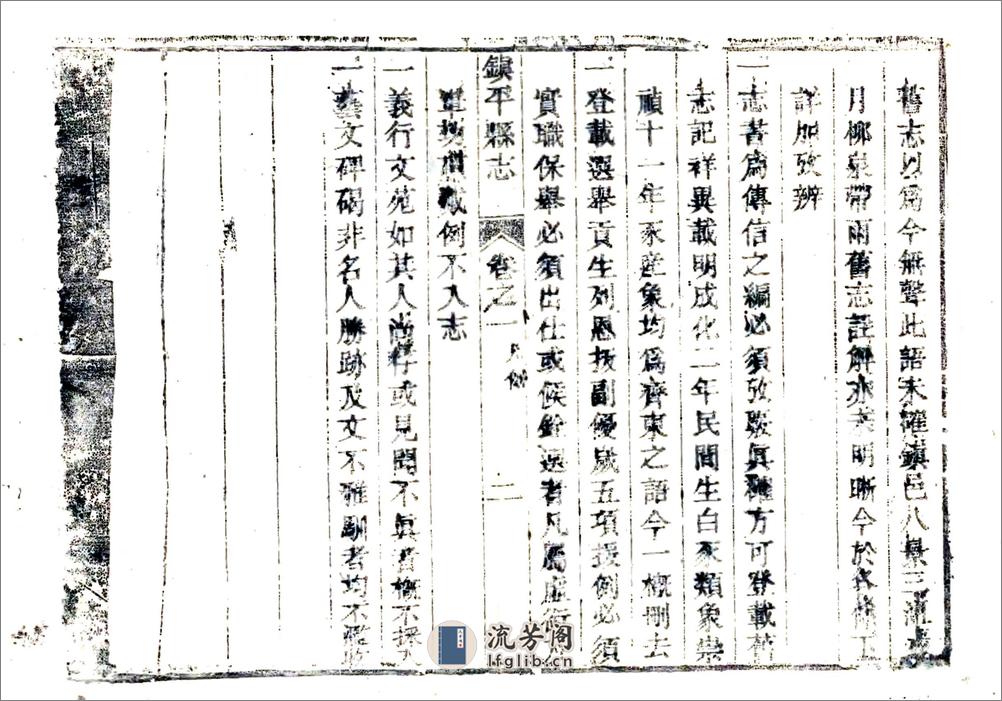 舊志以爲今無聲此語未確鎮邑八景三潭
月柳泉帶雨舊志註解亦未明晰今於各條下
詳加攷辨
一志書爲傳信之編必須攷覈眞確方可登載舊
志記祥異載明成化二年民間生白豕類象崇
禎十一年豕産象均爲齊東之語今一槪刪去
一登載選舉貢生列恩拔副優歲五項援例必須
實職保舉必須出仕或候銓選者凡屬虛銜
鎮平縣志
卷之一
凡例
二
軍功職例不入志
一義行文苑如其人尚存或見聞不眞者槪不採入
一藝文碑碣非名人勝跡及文不雅馴者均不
流芳阁
lfglib.cn